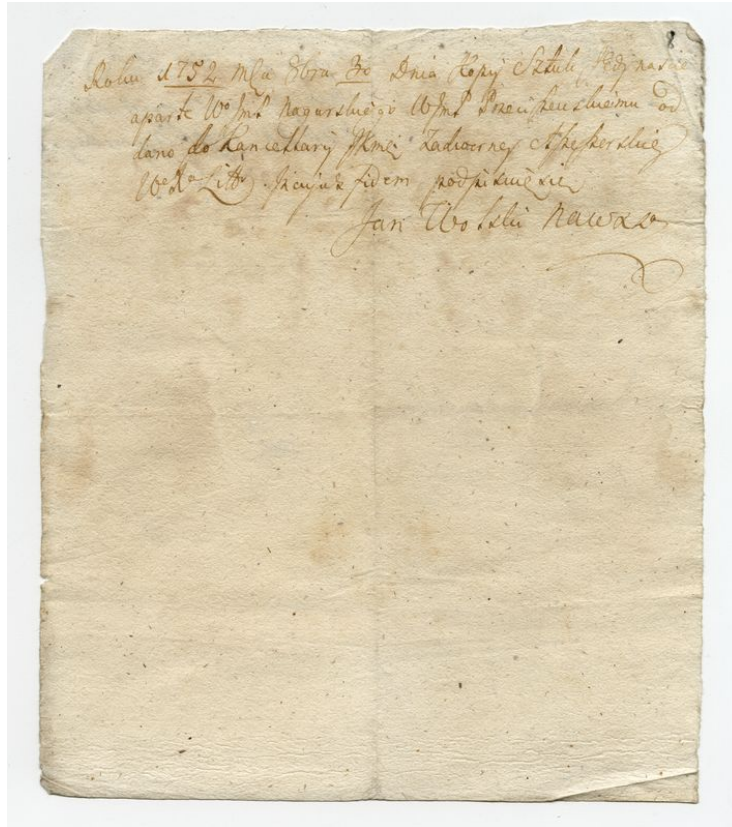 8
Roku 1752 Mca 8bra 30 Dnia Kopij Sztuk Jedynascie
aparte Wo Jmś Nagurskiego WJmP Przeciszewskiemu od
dano do Kancellaryi JKmci Zadworney Assesorskiey
WoXo Litto In cujus fidem podpisuię się
Jan Wolski